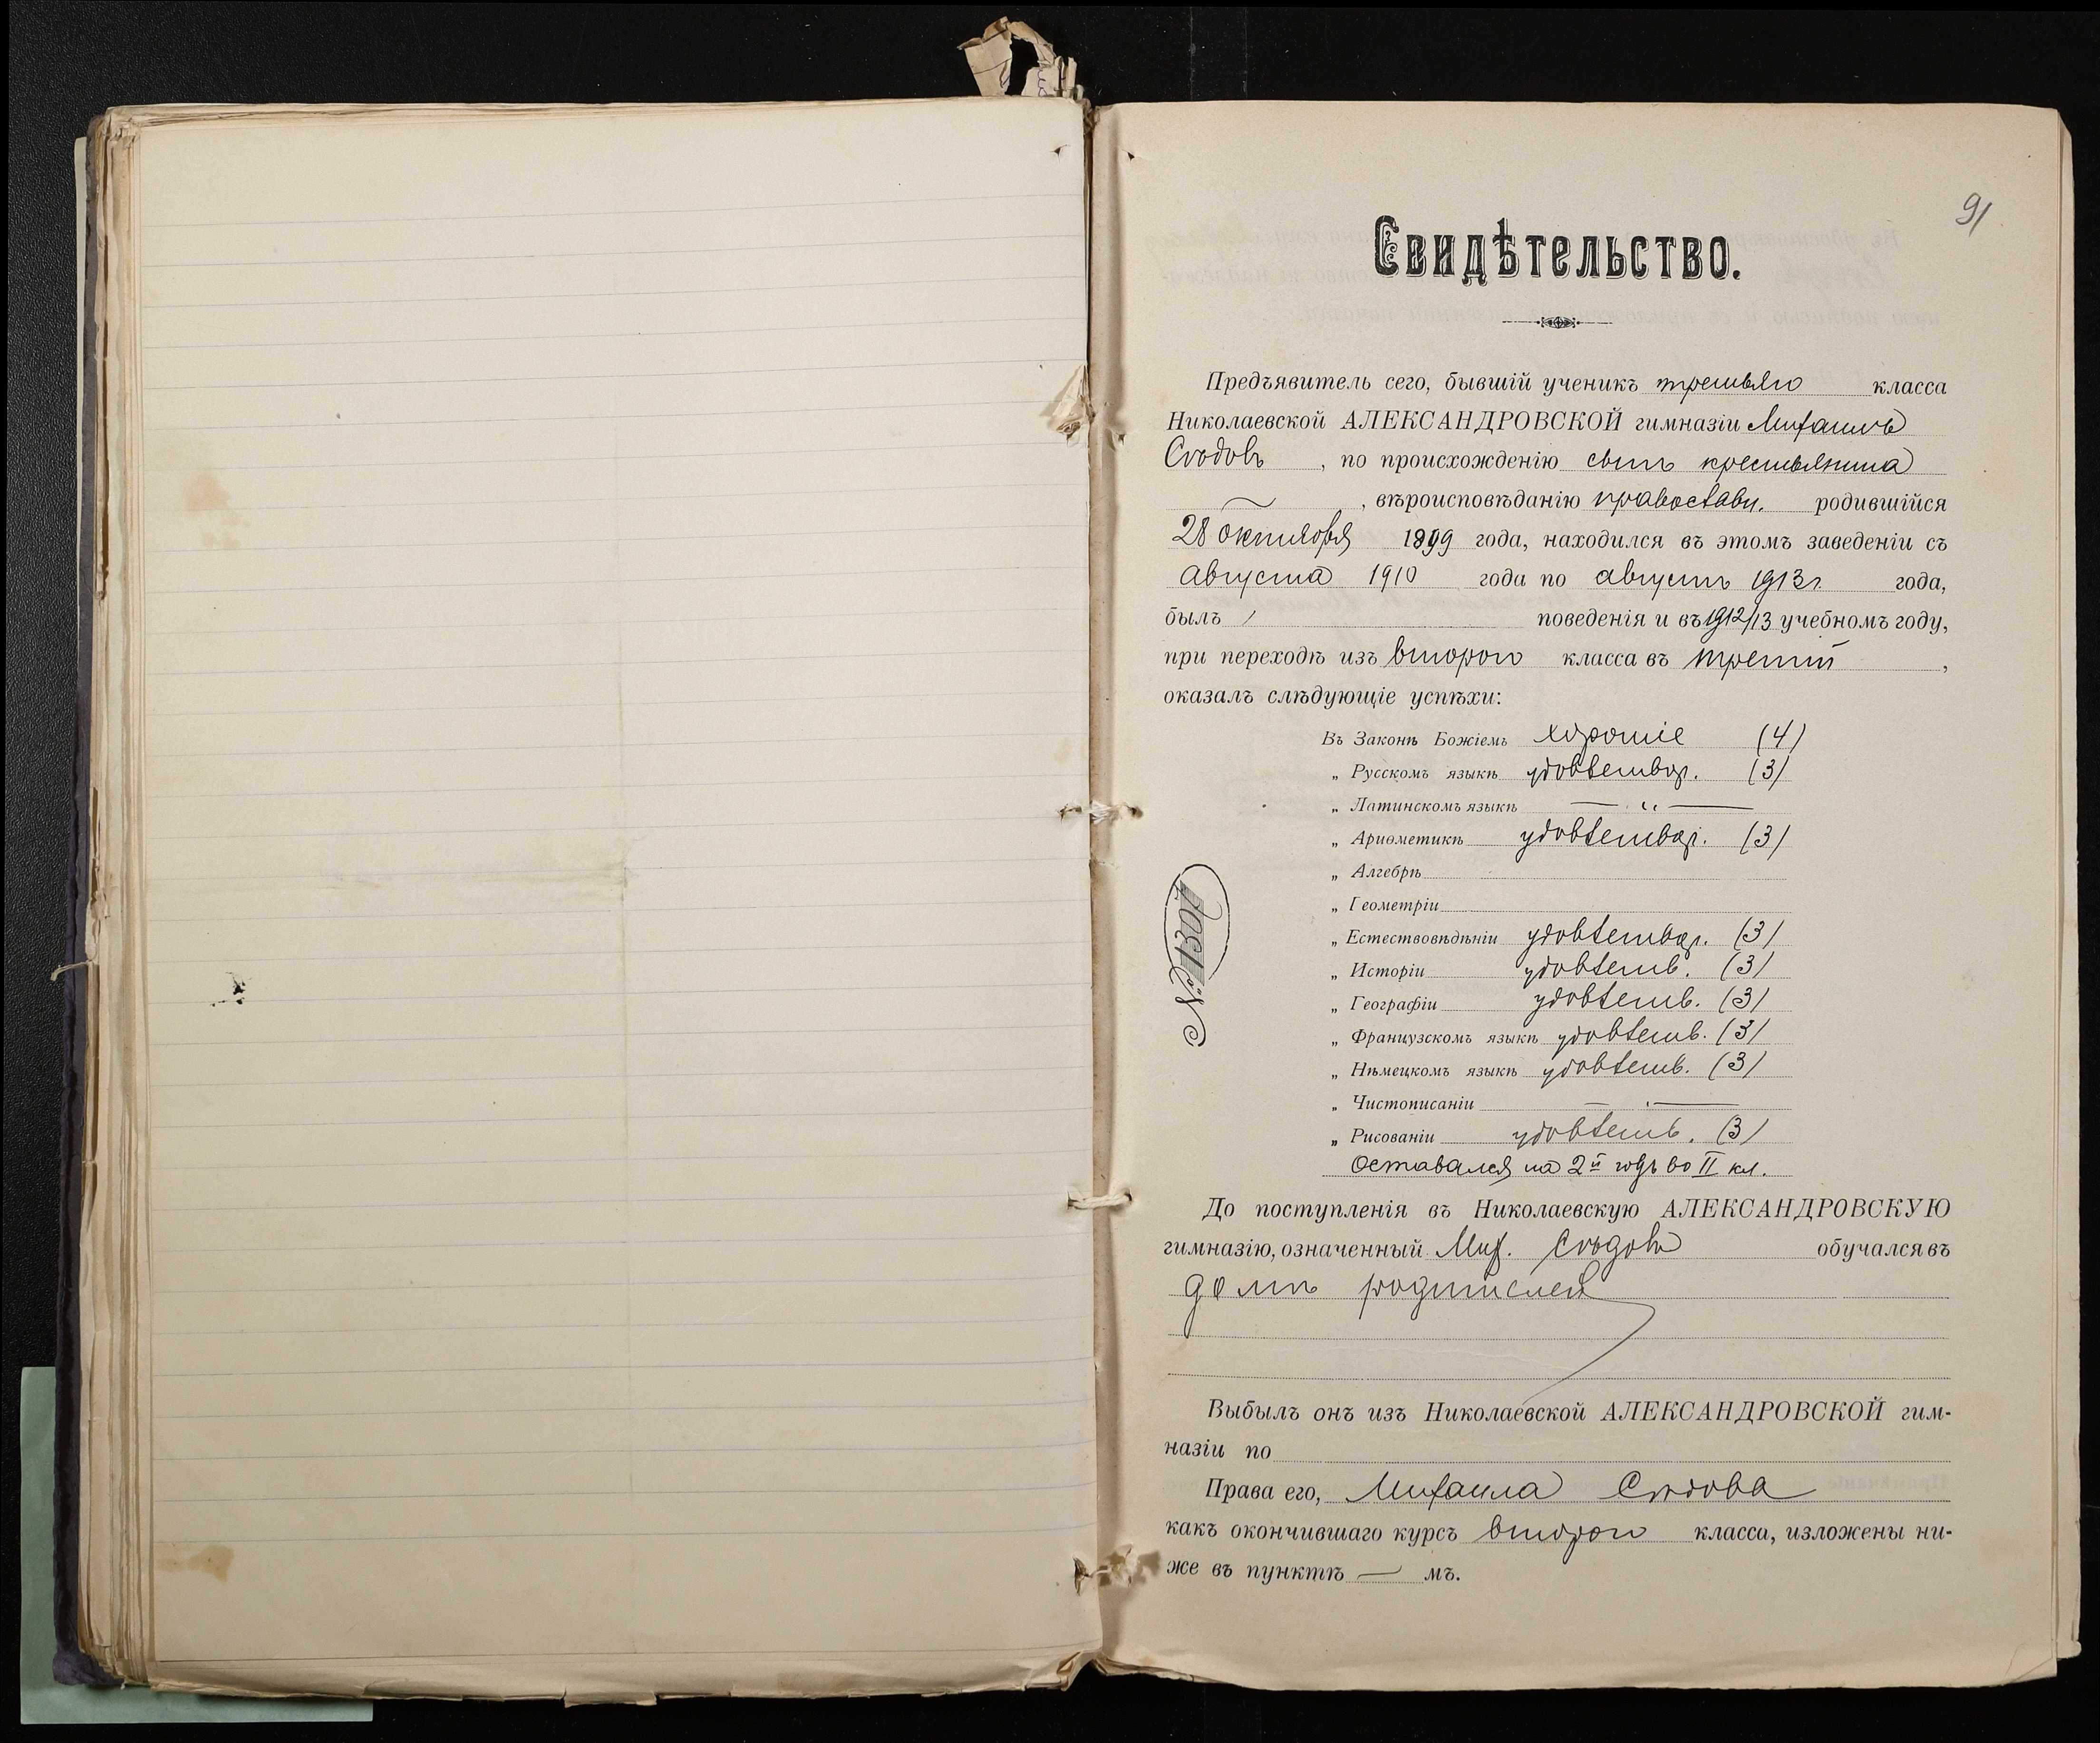 91
Свидѣтельство.
Предъявитель сего, бывшій ученикъ третьяго класса
Николаевской АЛЕКСАНДРОВСКОЙ гимназіи Михаилъ
Сѣдовъ, по происхожденію сынъ крестьянина
, вѣроисповѣданію православн. родившійся
28 октября 1899 года, находился въ этомъ заведеніи съ
августа 1910 года по августъ 1913 г. года,
былъ поведенія и въ 1912/13 учебномъ году,
при переходѣ изъ второго класса въ третій,
оказалъ слѣдующіе успѣхи:
Въ Законѣ Божіемъ хорошіе (4)
„ Русскомъ языкѣ удовлетвор. (3)
„ Латинскомъ языкѣ — „ —
„ Ариѳметикѣ удовлетвор. (3)
„ Алгебрѣ
„ Геометріи
„ Естествовѣдѣніи удовлетвор. (3)
„ Исторіи удовлетв. (3)
„ Географіи удовлетв. (3)
„ Французскомъ языкѣ удовлетв. (3)
„ Нѣмецкомъ языкѣ удовлетв. (3)
„ Чистописаніи — —
„ Рисованіи удовлетв. (3)
Оставался на 2й годъ во II кл.
№ 1031
До поступленія въ Николаевскую АЛЕКСАНДРОВСКУЮ
гимназію, означенный Мих. Сѣдовъ обучался въ
домѣ родителей
Выбылъ онъ изъ Николаевской АЛЕКСАНДРОВСКОЙ гим-
назіи по
Права его, Михаила Сѣдова
какъ окончившаго курсъ второго класса, изложены ни-
же въ пунктѣ — мъ.